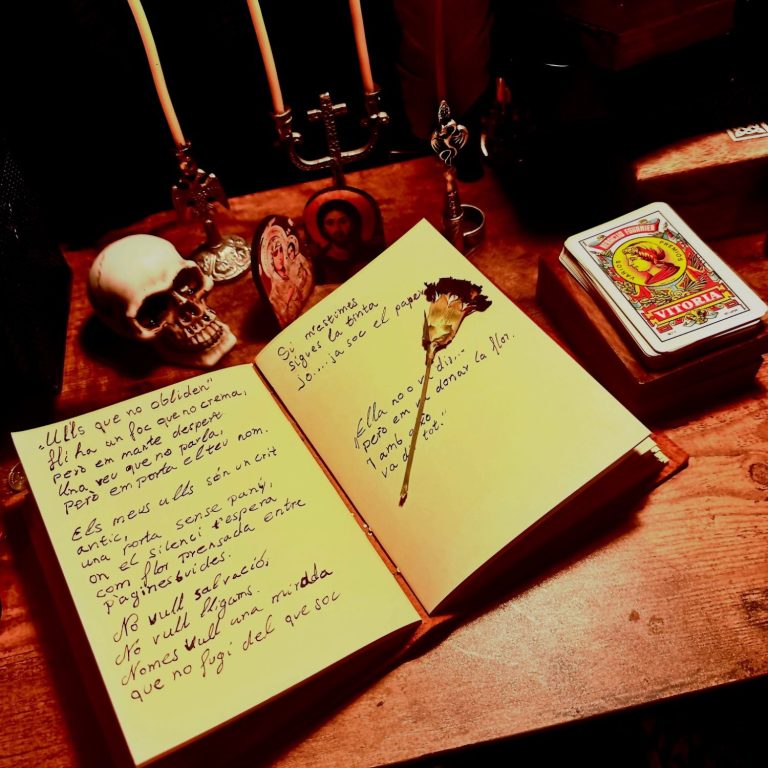 „Ulls que no obliden"
Hi ha un foc que no crema,
pero em manté despert.
Una veu que no parla,
Pero em porta el teu nom.
Els meus ulls són un crit
antic,
una porta sense pany,
on el silenci t'espera
com flor prensada entre
pàgines buides.
No vull salvació,
No vull lligams.
Nomes vull una mirdda
que no fugi del que soc
Si m'estimes
sigues la tinta
jo.... ja soc el paper
„Ella no o dir...
pero em donar la flor.
I amb
va tot."
HERACLIO FOURNIER
VARIOS PREMIOS
VITORIA